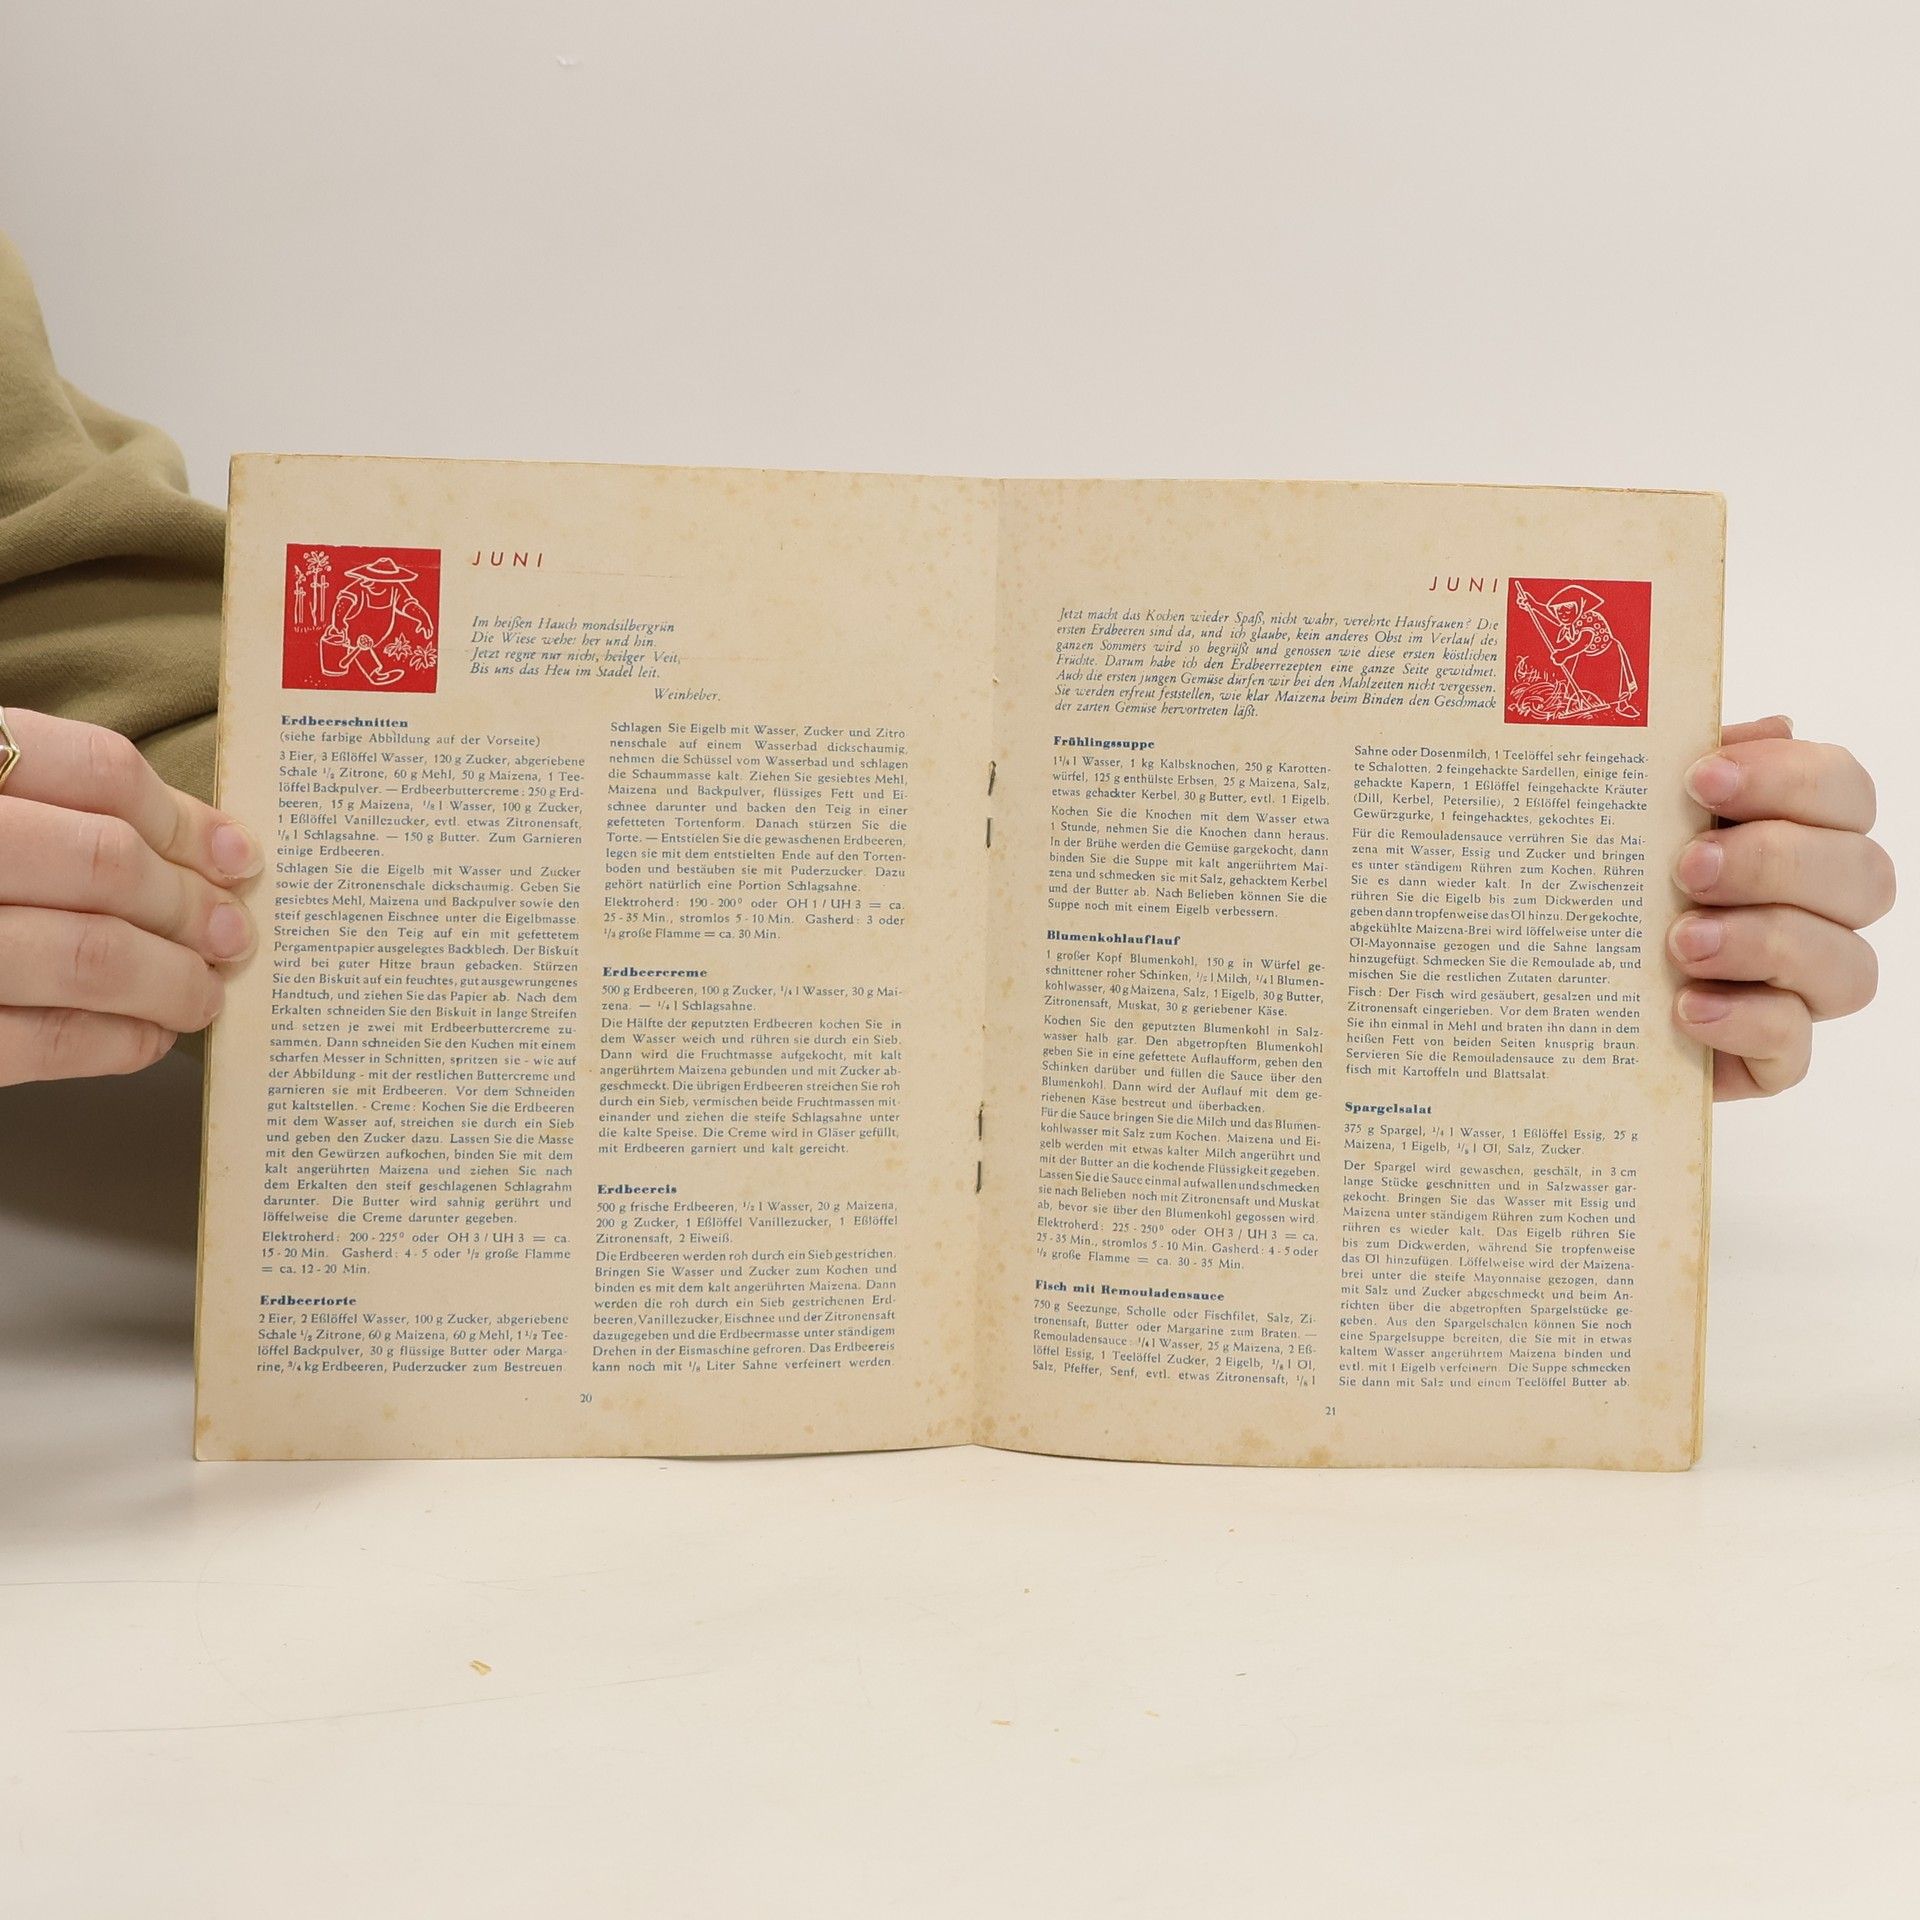 JUNI
Im heißen Hauch mondsilbergrün
Die Wiese wehet her und hin.
Jetzt regne nur nicht, heilger Veit,
Bis uns das Heu im Stadel leit.
Weinheber.
Erdbeerschnitten
(siehe farbige Abbildung auf der Vorseite)
3 Eier, 3 Eßlöffel Wasser, 120 g Zucker, abgeriebene
Schale ½ Zitrone, 60 g Mehl, 50 g Maizena, 1 Tee-
löffel Backpulver. — Erdbeerbuttercreme: 250 g Erd-
beeren, 15 g Maizena, ⅛ l Wasser, 100 g Zucker,
1 Eßlöffel Vanillezucker, evtl. etwas Zitronensaft,
⅛ l Schlagsahne. — 150 g Butter. Zum Garnieren
einige Erdbeeren.
Schlagen Sie die Eigelb mit Wasser und Zucker
sowie der Zitronenschale dickschaumig. Geben Sie
gesiebtes Mehl, Maizena und Backpulver sowie den
steif geschlagenen Eischnee unter die Eigelbmasse.
Streichen Sie den Teig auf ein mit gefettetem
Pergamentpapier ausgelegtes Backblech. Der Biskuit
wird bei guter Hitze braun gebacken. Stürzen
Sie den Biskuit auf ein feuchtes, gut ausgewrungenes
Handtuch, und ziehen Sie das Papier ab. Nach dem
Erkalten schneiden Sie den Biskuit in lange Streifen
und setzen je zwei mit Erdbeerbuttercreme zu-
sammen. Dann schneiden Sie den Kuchen mit einem
scharfen Messer in Schnitten, spritzen sie - wie auf
der Abbildung - mit der restlichen Buttercreme und
garnieren sie mit Erdbeeren. Vor dem Schneiden
gut kaltstellen. - Creme: Kochen Sie die Erdbeeren
mit dem Wasser auf, streichen sie durch ein Sieb
und geben den Zucker dazu. Lassen Sie die Masse
mit den Gewürzen aufkochen, binden Sie mit dem
kalt angerührten Maizena und ziehen Sie nach
dem Erkalten den steif geschlagenen Schlagrahm
darunter. Die Butter wird sahnig gerührt und
löffelweise die Creme darunter gegeben.
Elektroherd: 200-225° oder OH 3 / UH 3 = ca.
15-20 Min. Gasherd: 4-5 oder ½ große Flamme
= ca. 12-20 Min.
Erdbeertorte
2 Eier, 2 Eßlöffel Wasser, 100 g Zucker, abgeriebene
Schale ½ Zitrone, 60 g Maizena, 60 g Mehl, 1 ½ Tee-
löffel Backpulver, 30 g flüssige Butter oder Marga-
rine, ¾ kg Erdbeeren, Puderzucker zum Bestreuen
Schlagen Sie Eigelb mit Wasser, Zucker und Zitro
nenschale auf einem Wasserbad dickschaumig,
nehmen die Schüssel vom Wasserbad und schlagen
die Schaummasse kalt. Ziehen Sie gesiebtes Mehl,
Maizena und Backpulver, flüssiges Fett und Ei-
schnee darunter und backen den Teig in einer
gefetteten Tortenform. Danach stürzen Sie die
Torte. — Entstielen Sie die gewaschenen Erdbeeren,
legen sie mit dem entstielten Ende auf den Torten-
boden und bestäuben sie mit Puderzucker. Dazu
gehört natürlich eine Portion Schlagsahne.
Elektroherd: 190-200° oder OH 1 / UH 3 = ca.
25-35 Min., stromlos 5-10 Min. Gasherd: 3 oder
½ große Flamme = ca. 30 Min.
Erdbeercreme
500 g Erdbeeren, 100 g Zucker, ¼ l Wasser, 30 g Mai-
zena. — ¼ l Schlagsahne.
Die Hälfte der geputzten Erdbeeren kochen Sie in
dem Wasser weich und rühren sie durch ein Sieb.
Dann wird die Fruchtmasse aufgekocht, mit kalt
angerührtem Maizena gebunden und mit Zucker ab-
geschmeckt. Die übrigen Erdbeeren streichen Sie roh
durch ein Sieb, vermischen beide Fruchtmassen mit-
einander und ziehen die steife Schlagsahne unter
die kalte Speise. Die Creme wird in Gläser gefüllt,
mit Erdbeeren garniert und kalt gereicht.
Erdbeereis
500 g frische Erdbeeren, ½ l Wasser, 20 g Maizena,
200 g Zucker, 1 Eßlöffel Vanillezucker, 1 Eßlöffel
Zitronensaft, 2 Eiweiß.
Die Erdbeeren werden roh durch ein Sieb gestrichen.
Bringen Sie Wasser und Zucker zum Kochen und
binden es mit dem kalt angerührten Maizena. Dann
werden die roh durch ein Sieb gestrichenen Erd-
beeren, Vanillezucker, Eischnee und der Zitronensaft
dazugegeben und die Erdbeermasse unter ständigem
Drehen in der Eismaschine gefroren. Das Erdbeereis
kann noch mit ⅛ Liter Sahne verfeinert werden.
20
JUNI
Jetzt macht das Kochen wieder Spaß, nicht wahr, verehrte Hausfrauen? Die
ersten Erdbeeren sind da, und ich glaube, kein anderes Obst im Verlauf des
ganzen Sommers wird so begrüßt und genossen wie diese ersten köstlichen
Früchte. Darum habe ich den Erdbeerrezepten eine ganze Seite gewidmet.
Auch die ersten jungen Gemüse dürfen wir bei den Mahlzeiten nicht vergessen.
Sie werden erfreut feststellen, wie klar Maizena beim Binden den Geschmack
der zarten Gemüse hervortreten läßt.
Frühlingssuppe
1¼ l Wasser, 1 kg Kalbsknochen, 250 g Karotten-
würfel, 125 g enthülste Erbsen, 25 g Maizena, Salz,
etwas gehackter Kerbel, 30 g Butter, evtl. 1 Eigelb.
Kochen Sie die Knochen mit dem Wasser etwa
1 Stunde, nehmen Sie die Knochen dann heraus.
In der Brühe werden die Gemüse gargekocht, dann
binden Sie die Suppe mit kalt angerührtem Mai-
zena und schmecken sie mit Salz, gehacktem Kerbel
und der Butter ab. Nach Belieben können Sie die
Suppe noch mit einem Eigelb verbessern.
Blumenkohlauflauf
1 großer Kopf Blumenkohl, 150 g in Würfel ge-
schnittener roher Schinken, ½ l Milch, ¼ l Blumen-
kohlwasser, 40 g Maizena, Salz, 1 Eigelb, 30 g Butter,
Zitronensaft, Muskat, 30 g geriebener Käse.
Kochen Sie den geputzten Blumenkohl in Salz-
wasser halb gar. Den abgetropften Blumenkohl
geben Sie in eine gefettete Auflaufform, geben den
Schinken darüber und füllen die Sauce über den
Blumenkohl. Dann wird der Auflauf mit dem ge-
riebenen Käse bestreut und überbacken.
Für die Sauce bringen Sie die Milch und das Blumen-
kohlwasser mit Salz zum Kochen. Maizena und Ei-
gelb werden mit etwas kalter Milch angerührt und
mit der Butter an die kochende Flüssigkeit gegeben.
Lassen Sie die Sauce einmal aufwallen und schmecken
sie nach Belieben noch mit Zitronensaft und Muskat
ab, bevor sie über den Blumenkohl gegossen wird.
Elektroherd: 225-250° oder OH 3 / UH 3 = ca.
25-35 Min., stromlos 5-10 Min. Gasherd: 4-5 oder
½ große Flamme = ca. 30-35 Min.
Fisch mit Remouladensauce
750 g Seezunge, Scholle oder Fischfilet, Salz, Zi-
tronensaft, Butter oder Margarine zum Braten. —
Remouladensauce: ¼ l Wasser, 25 g Maizena, 2 Eß-
löffel Essig, 1 Teelöffel Zucker, 2 Eigelb, ⅛ l Öl,
Salz, Pfeffer, Senf, evtl. etwas Zitronensaft, ⅛ l
Sahne oder Dosenmilch, 1 Teelöffel sehr feingehack-
te Schalotten, 2 feingehackte Sardellen, einige fein-
gehackte Kapern, 1 Eßlöffel feingehackte Kräuter
(Dill, Kerbel, Petersilie), 2 Eßlöffel feingehackte
Gewürzgurke, 1 feingehacktes, gekochtes Ei.
Für die Remouladensauce verrühren Sie das Mai-
zena mit Wasser, Essig und Zucker und bringen
es unter ständigem Rühren zum Kochen. Rühren
Sie es dann wieder kalt. In der Zwischenzeit
rühren Sie die Eigelb bis zum Dickwerden und
geben dann tropfenweise das Öl hinzu. Der gekochte,
abgekühlte Maizena-Brei wird löffelweise unter die
Öl-Mayonnaise gezogen und die Sahne langsam
hinzugefügt. Schmecken Sie die Remoulade ab, und
mischen Sie die restlichen Zutaten darunter.
Fisch: Der Fisch wird gesäubert, gesalzen und mit
Zitronensaft eingerieben. Vor dem Braten wenden
Sie ihn einmal in Mehl und braten ihn dann in dem
heißen Fett von beiden Seiten knusprig braun.
Servieren Sie die Remouladensauce zu dem Brat-
fisch mit Kartoffeln und Blattsalat.
Spargelsalat
375 g Spargel, ¼ l Wasser, 1 Eßlöffel Essig, 25 g
Maizena, 1 Eigelb, ⅛ l Öl, Salz, Zucker.
Der Spargel wird gewaschen, geschält, in 3 cm
lange Stücke geschnitten und in Salzwasser gar-
gekocht. Bringen Sie das Wasser mit Essig und
Maizena unter ständigem Rühren zum Kochen und
rühren es wieder kalt. Das Eigelb rühren Sie
bis zum Dickwerden, während Sie tropfenweise
das Öl hinzufügen. Löffelweise wird der Maizena-
brei unter die steife Mayonnaise gezogen, dann
mit Salz und Zucker abgeschmeckt und beim An-
richten über die abgetropften Spargelstücke ge-
geben. Aus den Spargelschalen können Sie noch
eine Spargelsuppe bereiten, die Sie mit in etwas
kaltem Wasser angerührtem Maizena binden und
evtl. mit 1 Eigelb verfeinern. Die Suppe schmecken
Sie dann mit Salz und einem Teelöffel Butter ab.
21